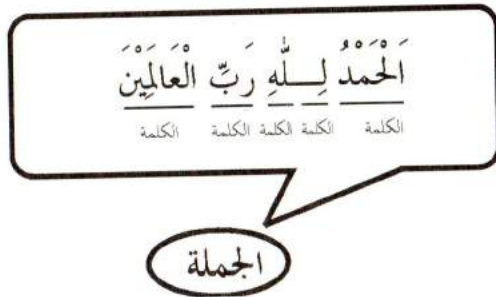 اَلْحَمْدُ لِلّٰهِ رَبِّ الْعَالَمِيْنَ
الكلمة الكلمة الكلمة الكلمة الكلمة
الجملة